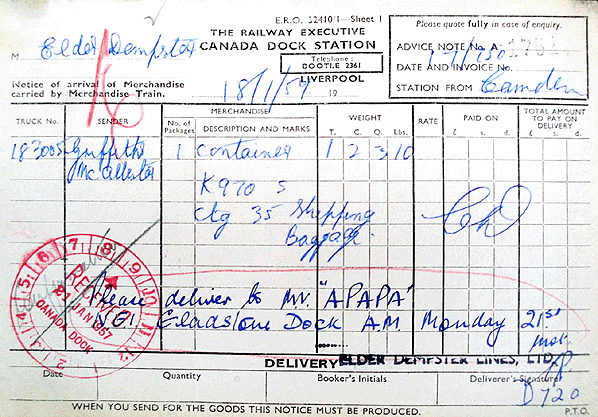 E.R.O. 32410/1—Sheet 1
THE RAILWAY EXECUTIVE
CANADA DOCK STATION
Telephone :
BOOTLE 2361
LIVERPOOL
M Elder Dempster
Notice of arrival of Merchandise
carried by Merchandise Train.
18/1/57 19
Please quote fully in case of enquiry.
ADVICE NOTE No. A
DATE AND INVOICE No.
STATION FROM Camden
TRUCK No. SENDER No. of Packages MERCHANDISE DESCRIPTION AND MARKS WEIGHT T. C. Q. Lbs. RATE PAID ON £ s. d. TOTAL AMOUNT TO PAY ON DELIVERY £ s. d.
183005 Griffiths 1 Container 1 2 3 10
McAllister
K970 S
Ctg 35 Shipping
Baggage
21 JAN 1957
CANADA DOCK
Please deliver to MV. "APAPA"
Gladstone Dock A.M. Monday 21st
inst
DELIVERY ELDER DEMPSTER LINES, LTD.
Date Quantity Booker's Initials Deliverer's Signature
D720
WHEN YOU SEND FOR THE GOODS THIS NOTICE MUST BE PRODUCED.
P.T.O.